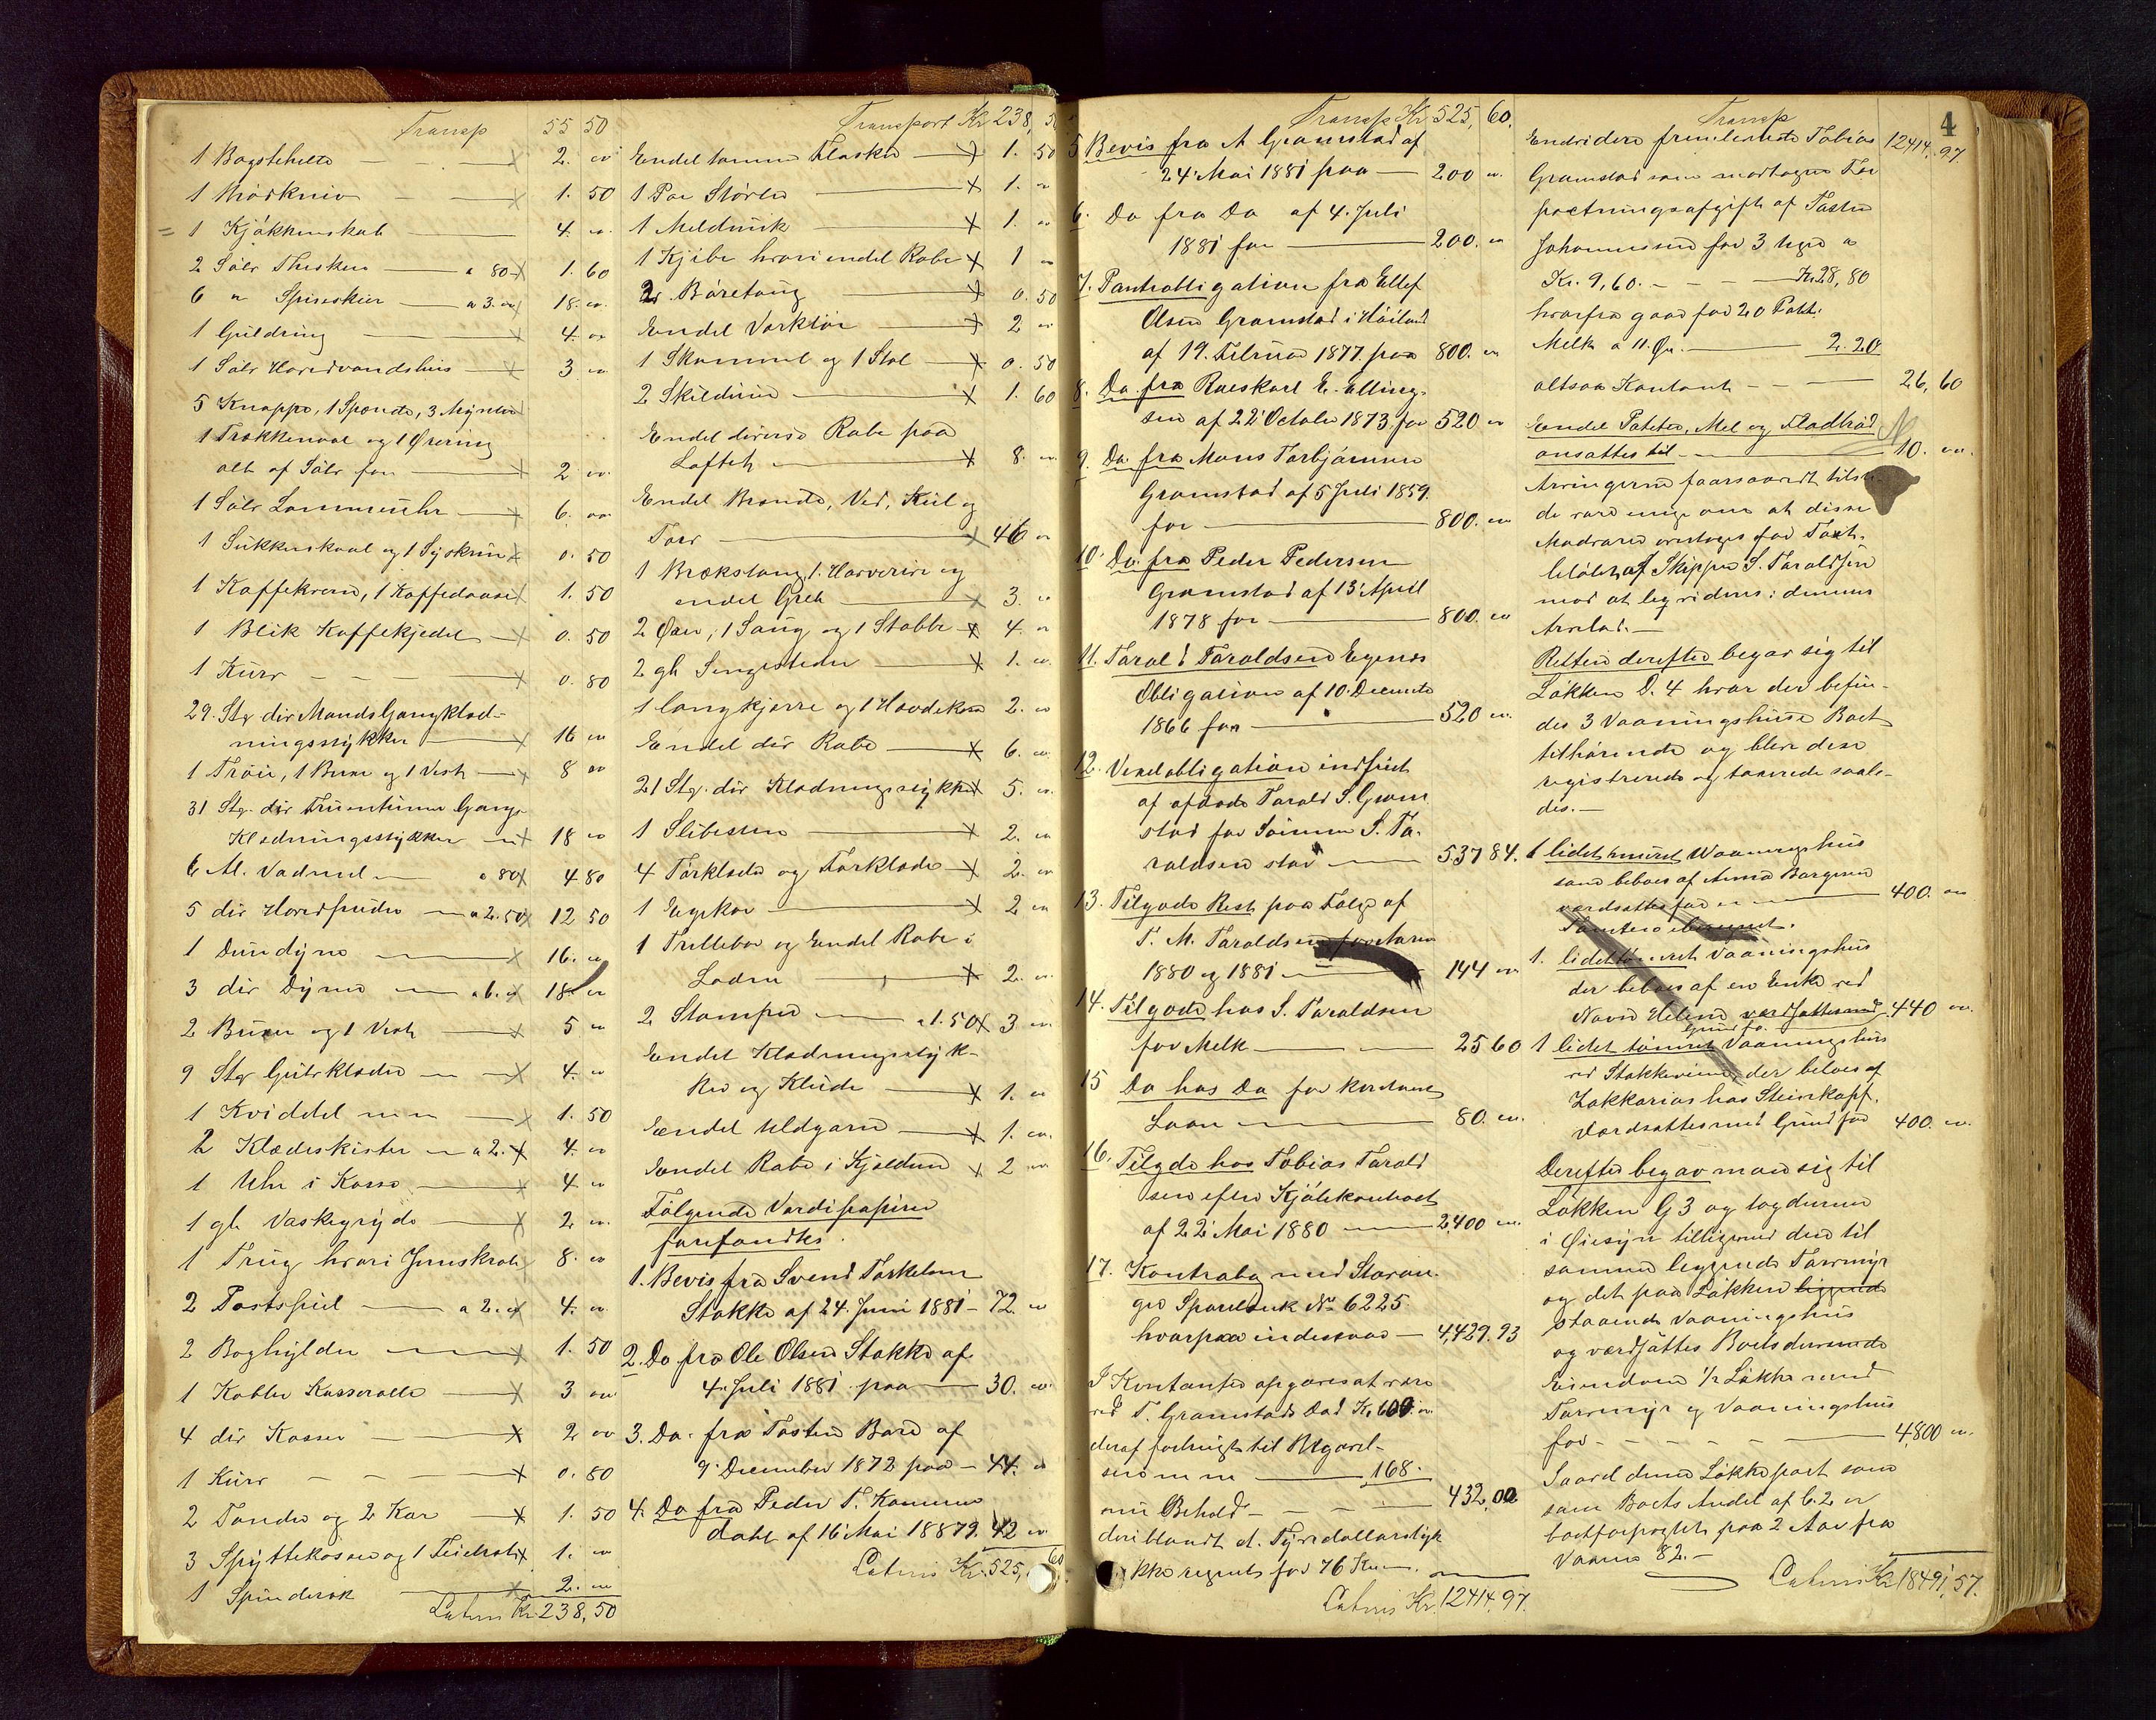 Transp 55 50
1 Bogstehelte 2. "
1 Brödkniv 1. 50
1 Kjökkenskab 4. "
2 Sölv Theskeer a 80 1. 60
6 " Spiseskeer a 3. " 18. "
1 Guldring 4. "
1 Sölv Hovedvandshus 3 "
5 Knappe, 1 Spænde, 3 Mynter
1 Trækkenaal og 1 Örering
alt af Sölv for 2 "
1 Sölv Lommeuhr 6. "
1 Sukkerskaal og 1 Syskrin 0. 50
1 Kaffekvern, 1 Kaffedaase 1. 50
1 Blik Kaffekjedel 0. 50
1 Kurv 0. 80
29. Stk dir Mands Gangklæd-
ningsstykker 16 "
1 Tröie, 1 Buxe og 1 Vest 8 "
31 Stk. dir Fruentimmer Gang-
Klædningsstykker 18 "
6 Al. Vadmel a 80 4 80
5 dir Hovedpuder a 2.50 12 50
1 Dundyne 16. "
3 dir Dyner a 6. " 18 "
2 Buxer og 1 Vest 5 "
9 Stk Gulvklæder 4. "
1 Kviddel 1. 50
2 Klædeskister a 2. 4. "
1 Uhr i Kasse 4 "
1 gl Vaskegryde 2 "
1 Trug hvori Jernskrab 8. "
2 Postspiel a 2. " 4. "
2 Boghylder 1. 50
1 Kobber Kasserolle 3 "
4 dir Kasser 2 "
1 Kurv 0. 80
2 Tønder og 2 Kar 1. 50
3 Spyttekasser og 1 1. "
1 Spinderok 2. "
Latus Kr. 238,50
Transport Kr 238, 50
Endel tomme Flasker 1. 50
1 Par Störler 1. "
1 Meldunk 1. "
1 Kjibe hvori endel Rabe 1 "
2. Böretoug 0. 50
Endel Værktöi 2 "
1 Skammel og 1 Stol 0. 50
2 Skilderier 1. 60
Endel diverse Rabe paa
Loftet 8. "
Endel Brænde, Ved, Kul og
Torv 46 "
1 Brækstang, 1. Harverive og
endel Greb 3. "
2 Öxer, 1 Saug og 1 Stabbe 4. "
2 gl Sengesteder 1. "
1 Langkjærre og 1 Hovdekar 2. "
Endel dir Rabe 6. "
21 Stk. dir Klædningsstykker 5. "
1 Slibesten 2. "
4 Törklæder og Forklæde 2. "
1 Egekar 2 "
1 Trillebør og Endel Rabe i
Laden 2. "
2 Stamper a 1. 50 3 "
Endel Klædningsstyk-
ker og Klude 1. "
Endel Uldgarn 1. "
Endel Rabe i Kjelderen 2 "
Fölgende Værdipapirer
forefandtes.
1. Bevis fra Svend Torkelsen
Stokke af 24. Juni 1881 72 "
2. Do fra Ole Olsen Stokke af
4. Juli 1881 paa 30. "
3. Do. fra Tosten Bore af
9. December 1872 paa 44. "
4. Do fra Peder T.
dahl af 16 Mai 18879. 42 "
Latus Kr. 525, 60
Transp Kr 525, 60.
4
5 Bevis fra A Gramstad af
24' Mai 1881 paa 200 "
6. Do fra Do af 4. Juli
1881 for 200. "
7. Pantobligation fra Ellef
Olsen Gramstad i Höiland
af 19. Februar 1877. paa 800. "
8. Do. fra Raeskarl E. Elling-
sen af 22' October 1873 for 520 "
9. Do. fra Mons Torbjörnsen
Gramstad af 5 Juli 1859.
for 800. "
10. Do. fra Peder Pedersen
Gramstad af 13' April
1878 for 800. "
11. Tarald Taraldsens Egenes
Obligation af 10. December
1866 for 520 "
12. Vexelobligation indfriet
af afdöde Tarald S. Gram
stad for Sönnen S. Ta-
raldsen stor 537 84.
13. Tilgode Rest paa Folge af
T. M. Taraldsen for Aaren
1880 og 1881 144 "
14. Tilgode hos S. Taraldsen
for Melk 25 60
15 Do hos Do for kontant
Laan 80. "
16. Tilgode hos Tobias Tarald
sen efter Kjöbekontract
af 22' Mai 1880 2,400 "
17. Kontrabog med Stavan-
ger Sparebank No 6225
hvorpaa indestaar 4,429. 93
I Kontanter opgaves at være
ved T. Gramstads Död Kr. 600. "
deraf forbrugt til Begravel-
sen m m 168.
nu Behold 432,00
deriblandt et. Fyrredollarstyk
ke regnet for 76 Kr
Latus Kr. 12414,97.
Transp
Endvidere fremlevnede Tobias 12414, 97
Gramstad som modtagne For
pactningsafgift af Tosten
Johannesen for 3 Uger a
Kr. 9,60. Kr 28, 80
hvorfra gaar for 20 Potter
Melk a 11. Öre. 2. 20
altsaa Kontant 26, 60
Endel Poteter, Mel og Fladbröd
ansattes til 10. "
Arvingerne forsaavidt tilste-
de vare enige om at disse
Madvarer overtoges for Taxt-
belöbet af Skipper S. Taraldsen
mod at lægges dens i dennes
Arvelod.
Retten derefter begav sig til
Lökken D. 4 hvor der befin-
des 3 Vaaningshuse Boet
tilhörende og bleve disse
registrerede og taxerede saale-
des.
1 lidet muret Vaaningshus
som beboes af Anna Borgersen
værdsattes for 400. "
Tomten iberegnet.
1. lidet tömret Vaaningshus
der beboes af en Enke ved
Navn Helene værdsattes med 440 "
Grund for
1 lidet tömret Vaaningshus
ved Stokkeveien, der beboes af
Zakkarias hos Steinkopf.
Værdsattes med Grund for 400. "
Derefter begav man sig til
Lökken G 3 og tog denne
i Öiesyn tilligemed den til
samme liggende Torvmyr
og det paa Lökken liggende
staaende Vaaningshus
og værdsattes Boets derværende
Eiendom 1/2 Lökke med
Torvmyr og Vaaningshus
for 4,800 "
Saavel denne Lökkepart som
som Boets Andel af C. 2 er
bortforpagtet paa 2 Aar fra
Vaaren 82.
Latus Kr 18491,57.